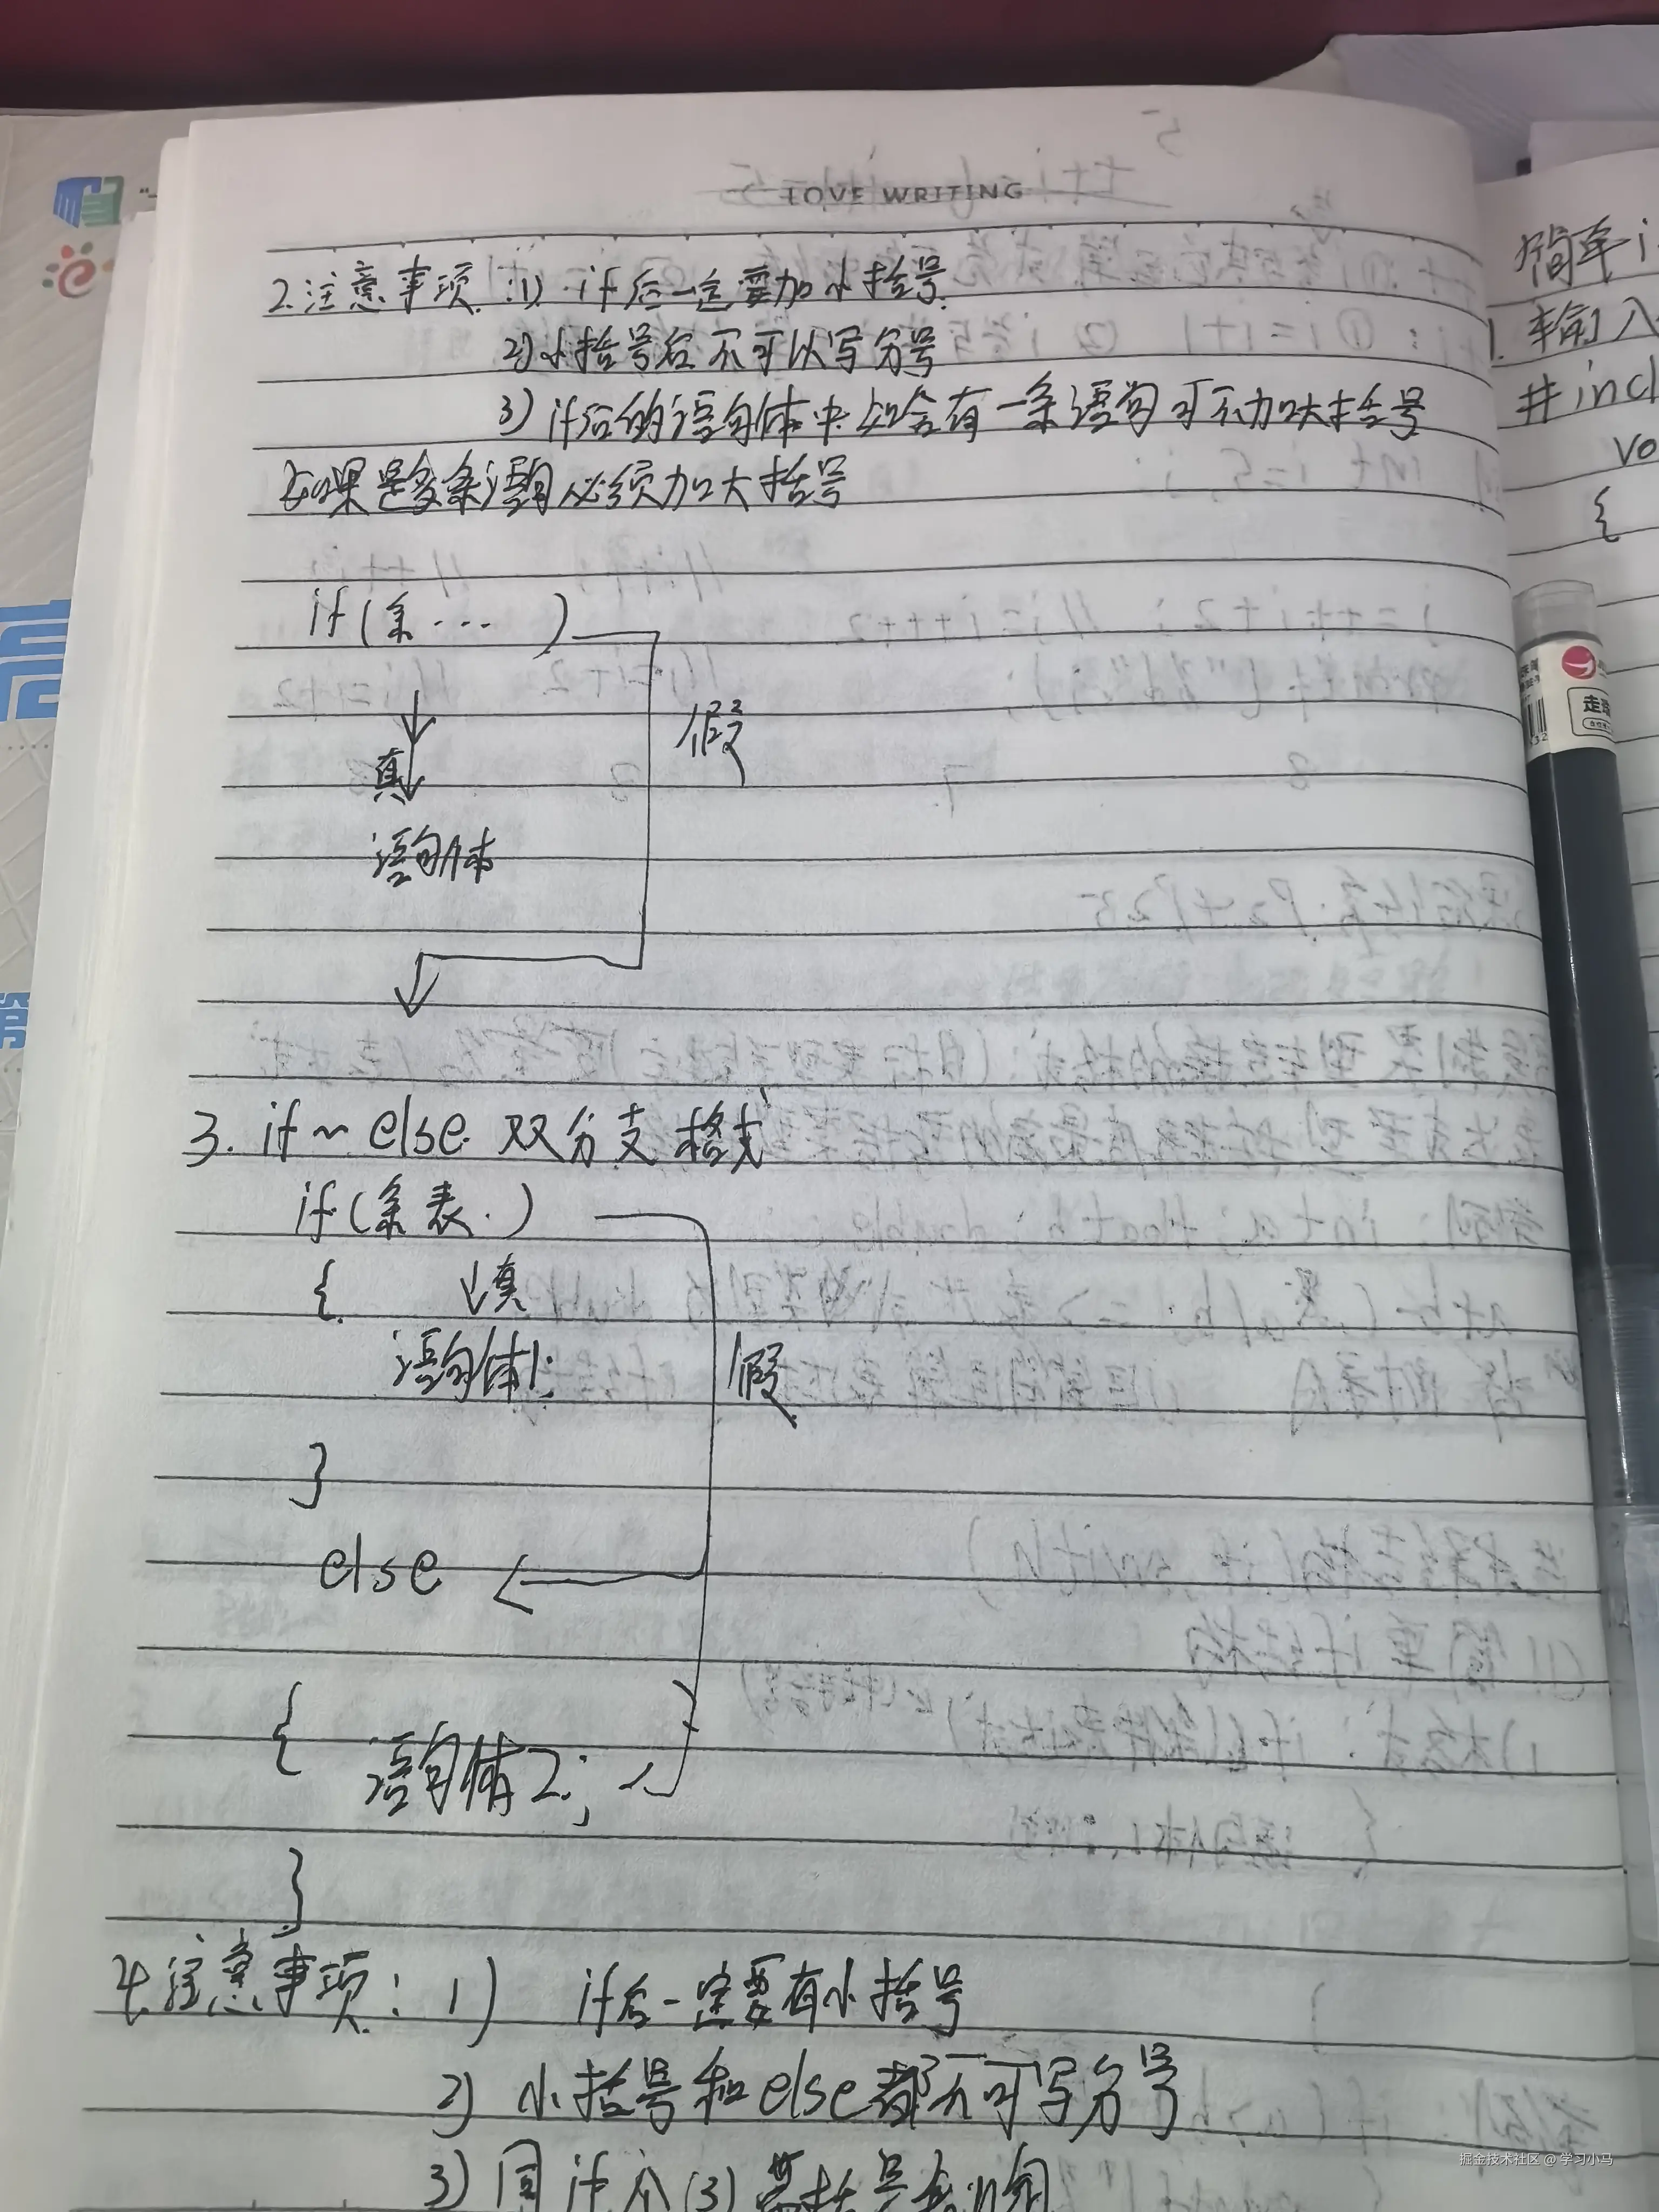 LOVE WRITING
2.注意事项:1) if后一定要加小括号.
2)小括号后不可以写分号
3) if后的语句体中如含有一条语句可不加大括号
如果是多条语句必须加大括号
if(条···)
假
↓
真
语句体
3. if~else 双分支格式
if(条表.)
{ ↓真
语句体1;
假
}
else
{
语句体2;
}
4.注意事项: 1) if后一定要有小括号
2) 小括号和else都不可写分号
3) 同if个(3)
简单i
1. 输入
#incl
vo
{
走珠
掘金技术社区 @ 学习小马